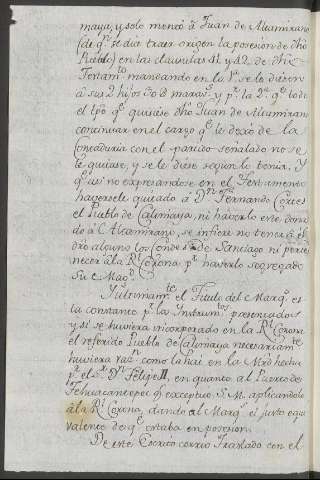 maya, y solo mencó á Juan de Altamirano
(de qn. se dice traer origen la posesion de dho
Pueblo) en las clausulas 51. y 52. de dho
Testamto. mandando en la 1a. se le diesen
á sus 2 hijos maravs. y pr. la 2a. qe. todo
el tpo. qe. quisiese dho Juan de Altamirano
continuar en el cargo qe. le dexó de la
Contaduria con el partido señalado no se
le quitase, y se le diese segun lo tenia. Y
qe. asi no expresandose en el Testamento
haversele quitado á Dn. Fernando Cortes
el Pueblo de Calimaya, ni haverlo este dona
do á Altamirano, se infiere no tener á él
dro alguno los Condes de Santiago ni perte
necer á la Rl. Corona pr. haverlo segregado
Su Magd.
Y ultimamte. el Titulo del Marqs. es
ta constante pr. la Instrumtos. presentados
y si se huviera incorporado en la Rl. Corona
el referido Pueblo de Calimaya necesariamte.
huviera razn. como la hai en la Mrd hecha
pr. el Sr. Dn. Felipe II, en quanto al Puerto de
Tehuacantepec qe. exceptuó S. M. aplicandolo
á la Rl. Corona, dando al Marqs. el justo equi
valente de qe. estaba en posesion.
De este Escrito corrio Traslado con el